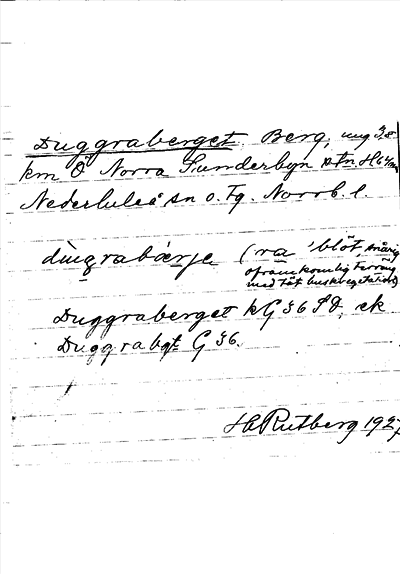 Duggraberget. Berg, ung 3,8
km Ö Norra Sunderbyn
Nederluleå sn o. tg. Norrb. l.
dùgrabærje (ra 'blöt, snårig
oframkomlig terräng
med tät buskvegetation)
Duggraberget kG 36 SÖ, ek
Duggrabgt G 36.
H Rutberg 1927